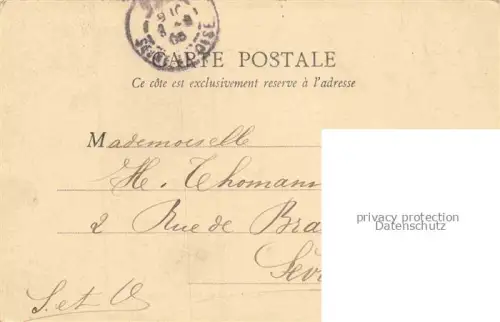 CARTE POSTALE
Ce côte est exclusivement reserve à l'adresse
Mademoiselle
H. Thomann
privacy protection
2 Rue de Bra
Datenschutz
Sèv
S. et O